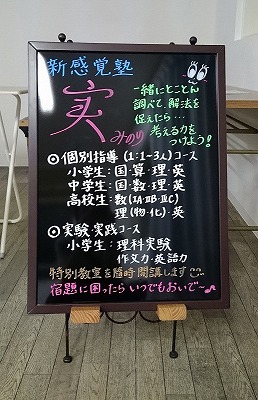 新感覚塾
実
みのり
一緒にとことん
調べて、解法を
捉えたら…
考える力を
つけよう!
◎個別指導(1:1~3人)コース
小学生:国・算・理・英
中学生:国・数・理・英
高校生:数(ⅠA・ⅡB・ⅢC)
理(物・化)・英
◎実験・実践コース
小学生:理科実験
作文力・英語力
特別教室を随時開講します
宿題に困ったら いつでもおいで~♪